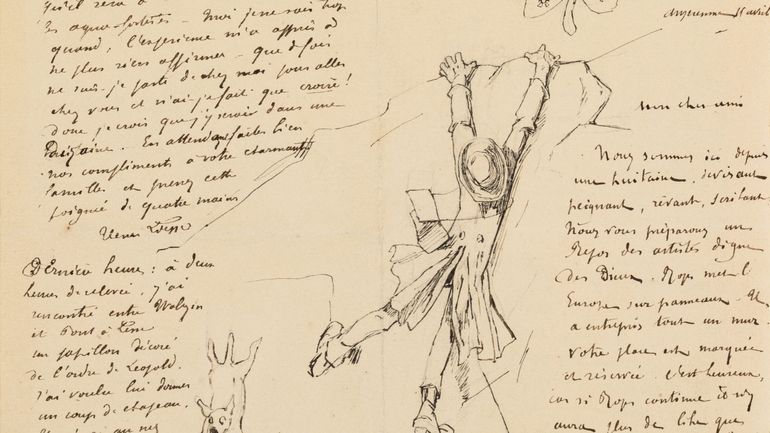 Qu'il
les aqua-fortistes - Moi je ne sais trop
quand, l'experience m'a appris à
ne plus rien affirmer - que de fois
ne suis-je parti de chez moi pour aller
chez vous et n'ai-je fait que croire!
donc je crois que j'y serai dans une
quinzaine. En attendant faites bien
nos compliments à votre charmante
famille et prenez cette
poignée de quatre mains
Dernière heure: à deux
heures de relevée j'ai
rencontré entre Walzin
et Pont à Lesse
un papillon décoré
de l'ordre de Léopold.
J'ai voulu lui donner
un coup de chapeau.
au nez
Anseremme avril
mon cher ami
Nous sommes ici depuis
une huitaine, devisant
peignant, rêvant,
Nous vous préparons un
Repos des artistes digne
des Dieux. Rops met l'
Europe sur panneaux. Il
a entrepris tout un mur.
Votre place est marquée
et réservée. C'est heureux,
car si Rops continue il n'y
aura plus de libre que